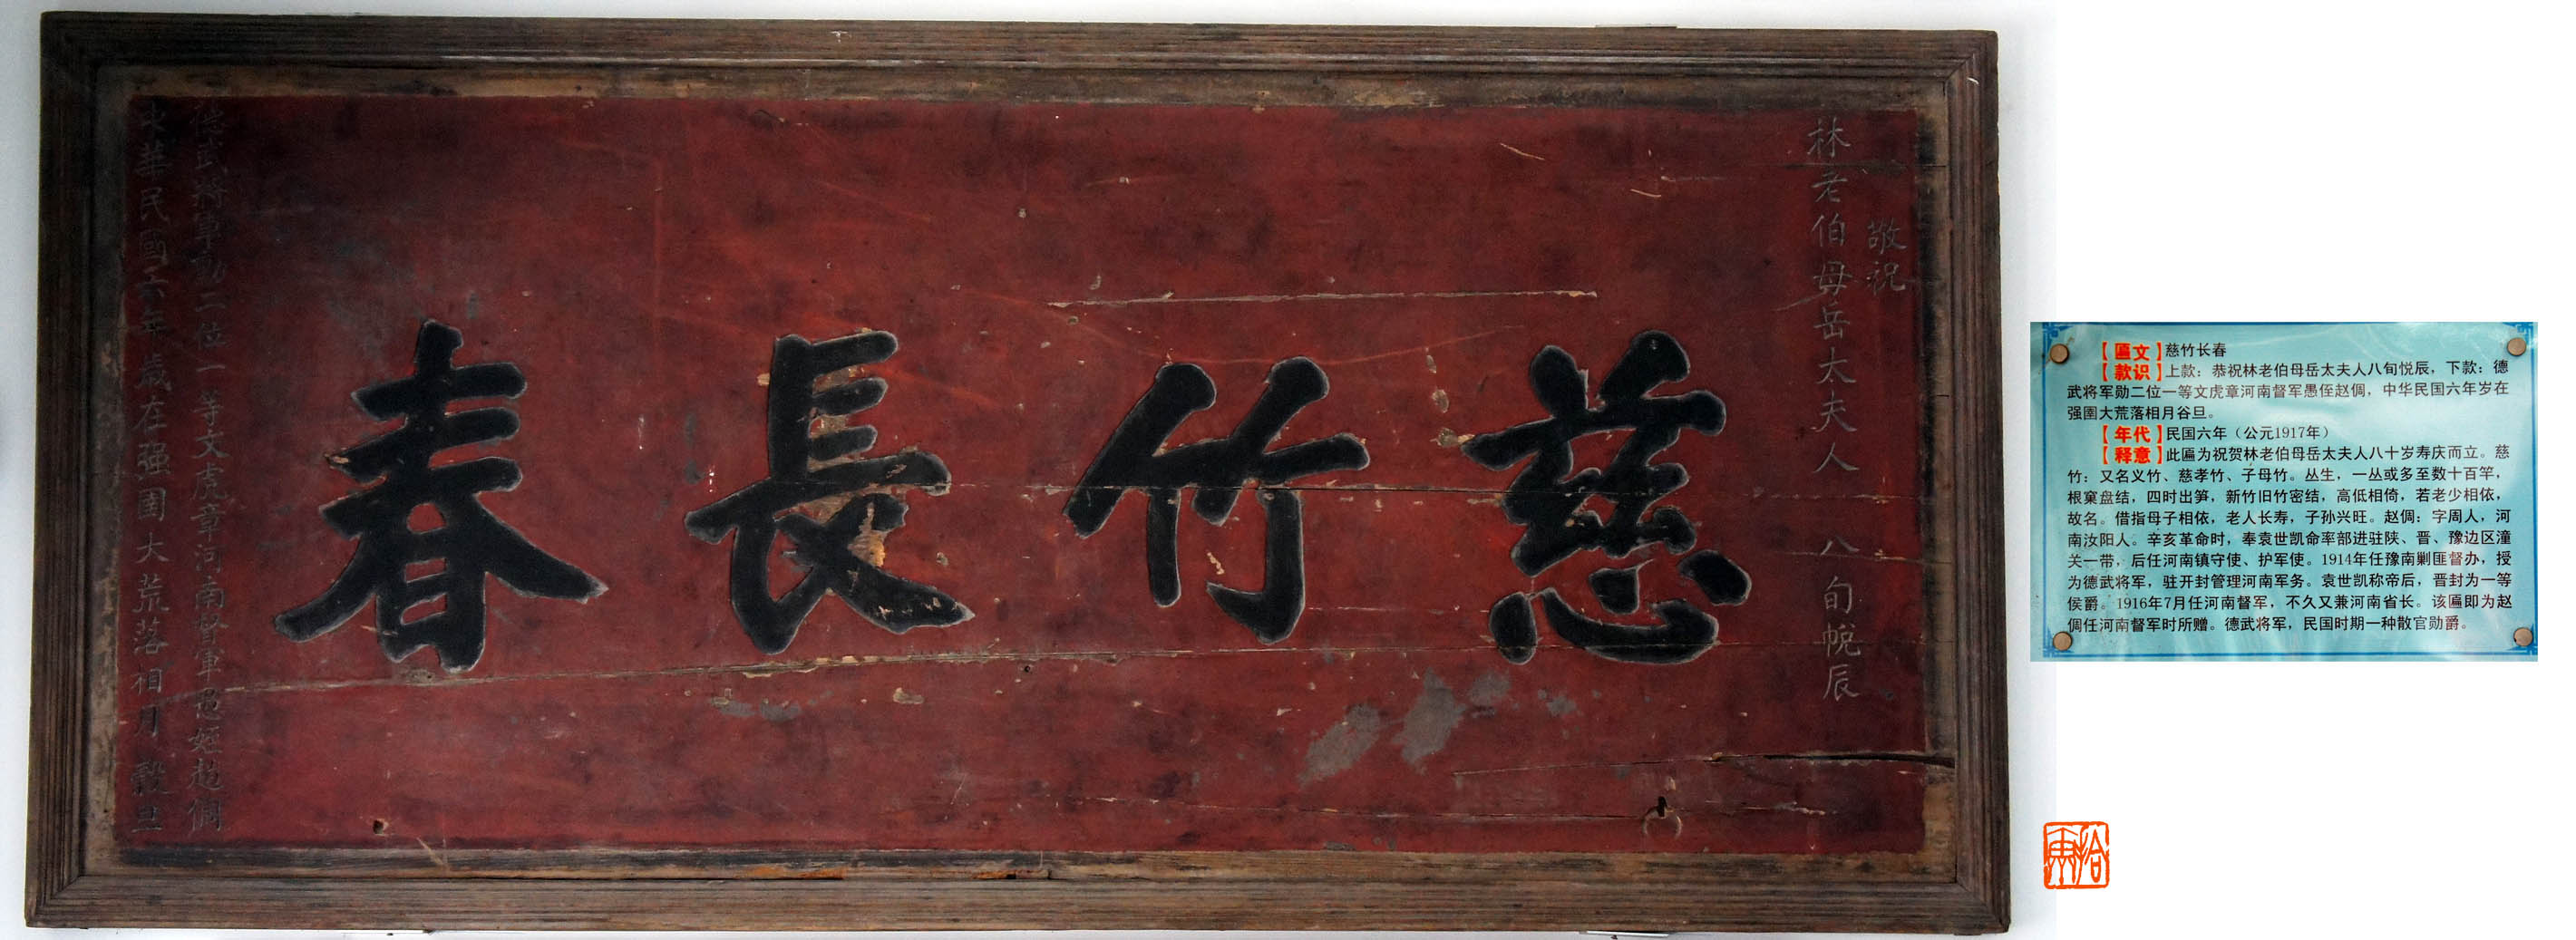 敬祝
林老伯母岳太夫人八旬悅辰
慈竹長春
德武將軍勳二位一等文虎章河南督軍愚姪趙倜
中華民國六年歲在强圉大荒落相月穀旦
【匾文】慈竹长春
【款识】上款：恭祝林老伯母岳太夫人八旬悦辰，下款：德
武将军勋二位一等文虎章河南督军愚侄赵倜，中华民国六年岁在
强圉大荒落相月谷旦。
【年代】民国六年（公元1917年）
【释意】此匾为祝贺林老伯母岳太夫人八十岁寿庆而立。慈
竹：又名义竹、慈孝竹、子母竹。丛生，一丛或多至数十百竿，
根窠盘结，四时出笋，新竹旧竹密结，高低相倚，若老少相依，
故名。借指母子相依，老人长寿，子孙兴旺。赵倜：字周人，河
南汝阳人。辛亥革命时，奉袁世凯命率部进驻陕、晋、豫边区潼
关一带，后任河南镇守使、护军使。1914年任豫南剿匪督办，授
为德武将军，驻开封管理河南军务。袁世凯称帝后，晋封为一等
侯爵。1916年7月任河南督军，不久又兼河南省长。该匾即为赵
倜任河南督军时所赠。德武将军，民国时期一种散官勋爵。